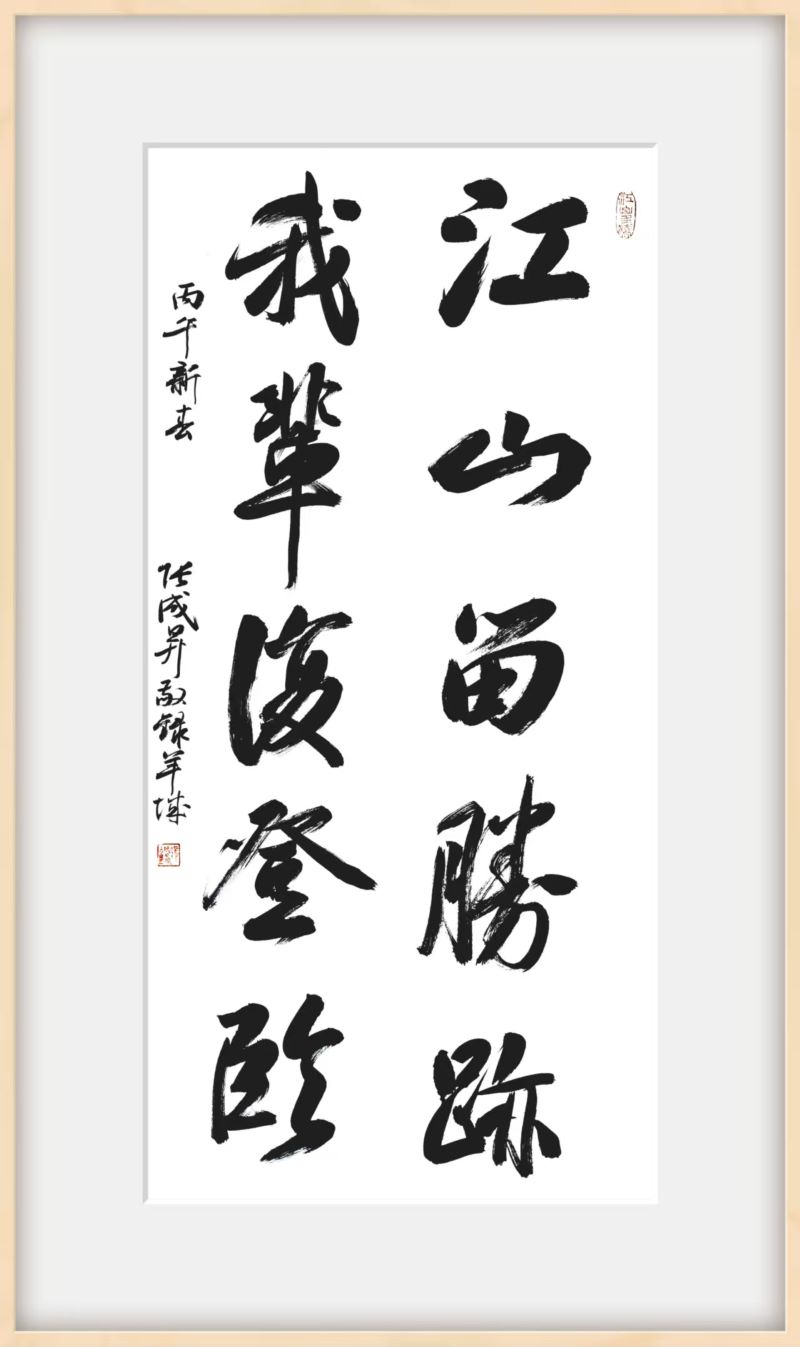 江山留勝跡
我輩復登臨
丙午新春
張成昇敬録羊城